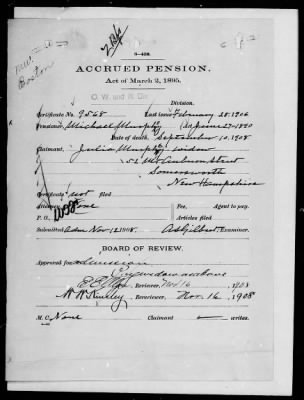 3—438.
ACCRUED PENSION.
Act of March 2, 1895.
O. W. and N. Div.
Division.
Certificate No. 9568 Last issue February 28, 1906
Pensioner Michael Murphy
Date of death, September 10, 1908
Claimant, Julia Murphy widow
Auburn Street
Somersworth
New Hampshire
Certificate not filed
Attorney None Fee, Agent to pay.
P. O., Articles filed
Submitted Adm Nov 12, 1908. Examiner.
BOARD OF REVIEW.
Approval for admission
widow as above
Reviewer. Nov 16, 1908
Rereviewer. Nov. 16, 1908
M. C. None Claimant — writes.